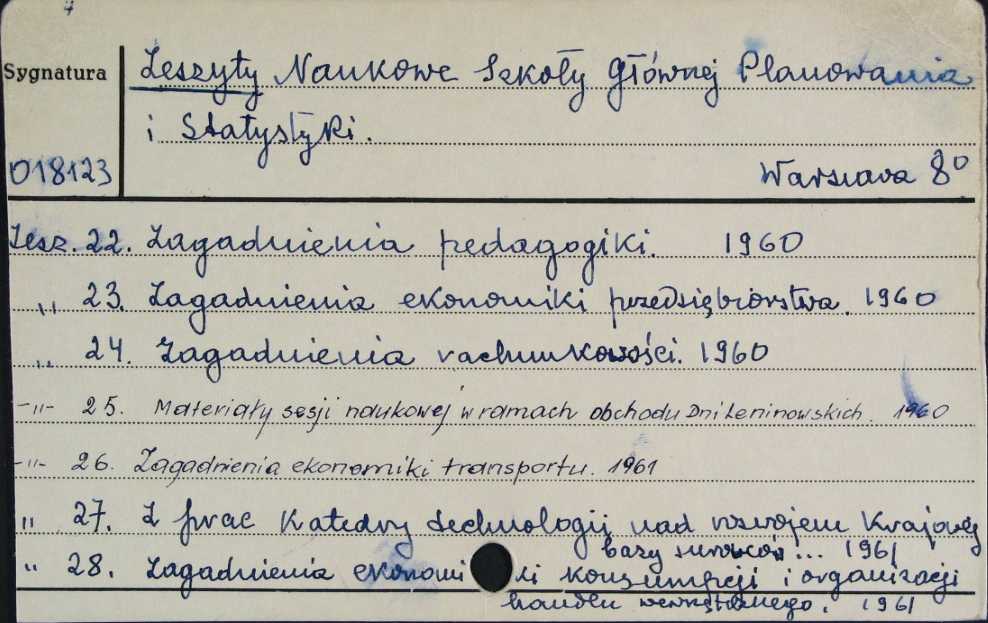 Sygnatura
Zeszyty Naukowe Szkoły Głównej Planowania
i Statystyki.
018123
Warszawa 8°
Zesz. 22. Zagadnienia pedagogiki. 1960
,, 23. Zagadnienia ekonomiki przedsiębiorstwa. 1960
,, 24. Zagadnienia rachunkowości. 1960
-"- 25. Materiały sesji naukowej w ramach obchodu Dni Leninowskich. 1960
-"- 26. Zagadnienia ekonomiki transportu. 1961
" 27. Z prac Katedry technologii nad rozwojem Krajowej
bazy surowców... 1961
" 28. Zagadnienia ekonomiki konsumpcji i organizacji
handlu wewnętrznego. 1961